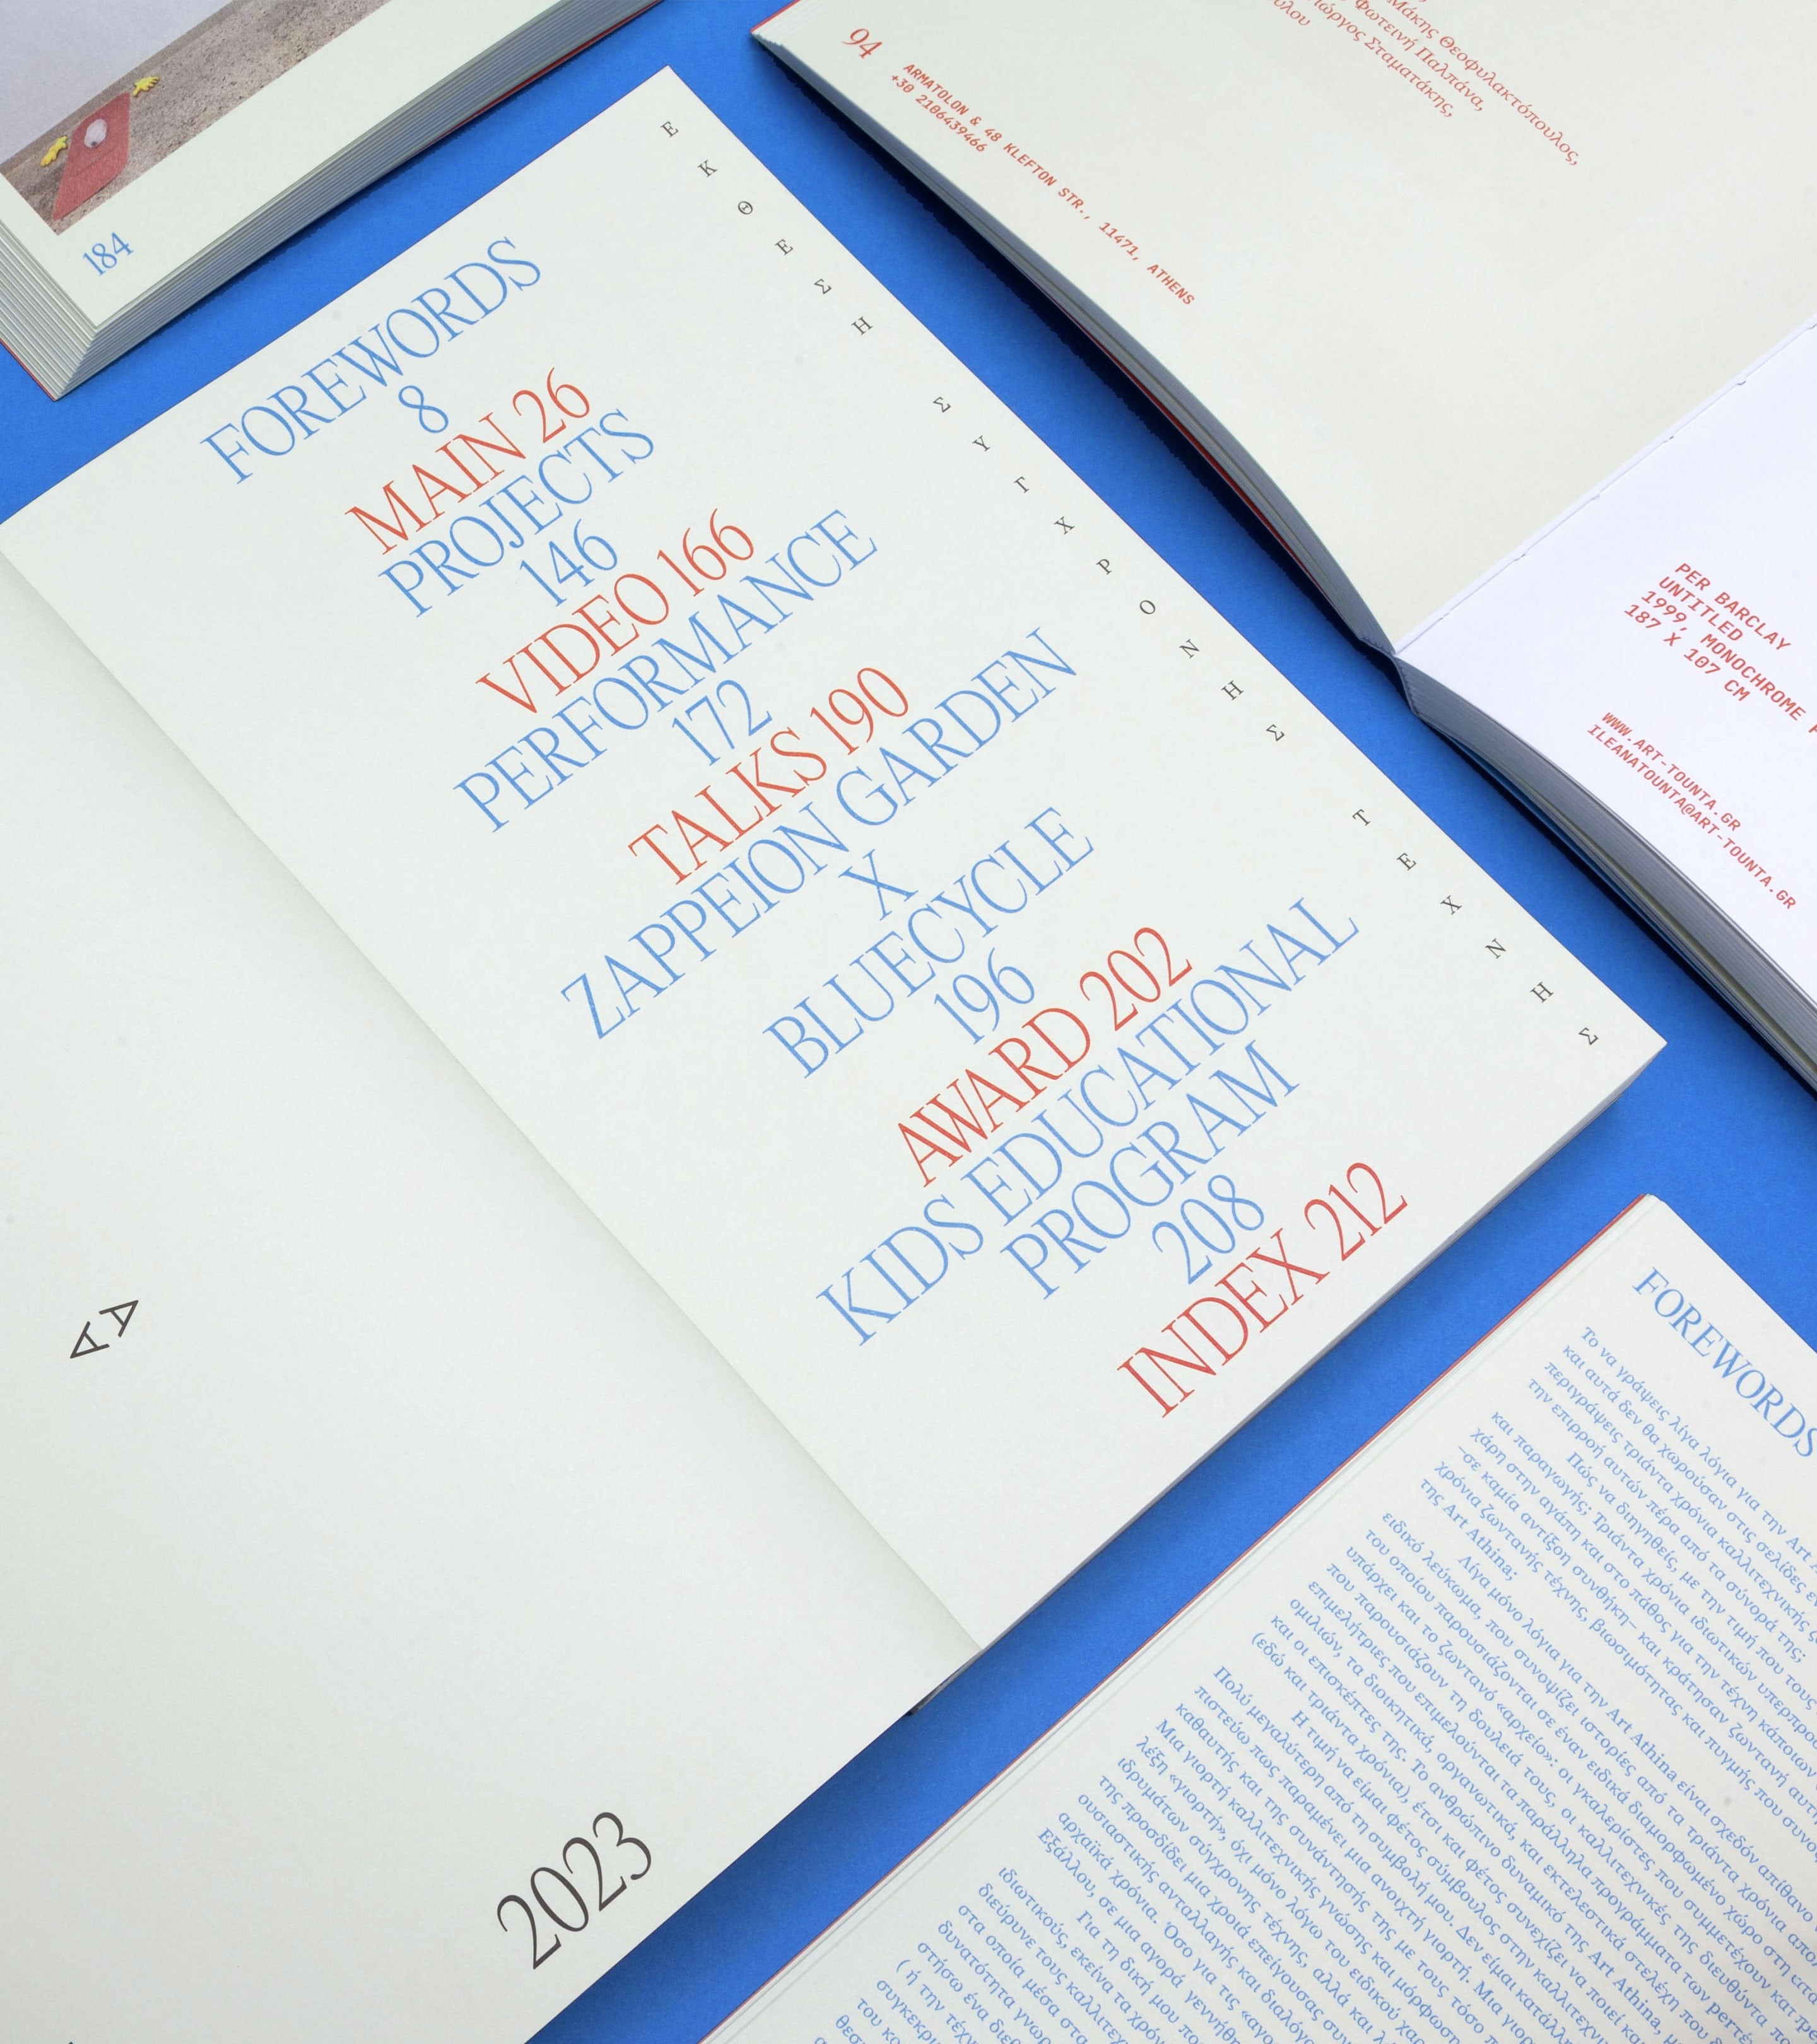 184
FOREWORDS
8
MAIN 26
PROJECTS
146
VIDEO 166
PERFORMANCE
172
TALKS 190
ZAPPEION GARDEN
X
BLUECYCLE
196
AWARD 202
KIDS EDUCATIONAL
PROGRAM
208
INDEX 212
ΕΚΘΕΣΗ ΣΥΓΧΡΟΝΗΣ ΤΕΧΝΗΣ
AA
2023
94
Μάκης Θεοφυλακτόπουλος,
Φωτεινή Παλπάνα,
Γιώργος Σταματάκης,
ARMATOLON & 48 KLEFTON STR., 11471, ATHENS
+30 2106439466
PER BARCLAY
UNTITLED
1999, MONOCHROME
187 X 107 CM
WWW.ART-TOUNTA.GR
ILEANATOUNTA@ART-TOUNTA.GR
FOREWORDS
Το να γράψεις λίγα λόγια για την Art
και αυτά δεν θα χωρούσαν στις σελίδες
περιγράψεις τριάντα χρόνια καλλιτεχνικής
την επιρροή αυτών πέρα από τα σύνορά της;
Πώς να διηγηθείς, με την τιμή που τους
και παραγωγής; Τριάντα χρόνια ιδιωτικών
χάρη στην αγάπη και στο πάθος για την τέχνη κάποιων
–σε καμία αντίξοη συνθήκη– και κράτησαν ζωντανή
χρόνια ζωντανής τέχνης, βιωσιμότητας και πυγμής που
της Art Athina;
Λίγα μόνο λόγια για την Art Athina είναι σχεδόν απίθανο
ειδικό λεύκωμα, που συνοψίζει ιστορίες από τα τριάντα χρόνια
του οποίου παρουσιάζονται σε έναν ειδικά διαμορφωμένο χώρο στη
υπάρχει και το ζωντανό «αρχείο»: οι γκαλερίστες που συμμετέχουν
που παρουσιάζουν τη δουλειά τους, οι καλλιτεχνικές της διευθύντριες
επιμελήτριες που επιμελούνται τα παράλληλα προγράμματα των
ομιλιών, τα διοικητικά, οργανωτικά, και εκτελεστικά στελέχη που
και οι επισκέπτες της. Το ανθρώπινο δυναμικό της Art Athina,
(εδώ και τριάντα χρόνια), έτσι και φέτος συνεχίζει να ποιεί
Η τιμή να είμαι φέτος σύμβουλος στην
Πολύ μεγαλύτερη από τη συμβολή μου. Δεν είμαι
πιστεύω πως παραμένει μια ανοιχτή γιορτή. Μια
καθαυτής και της συνάντησής της με τους τόσο
Μια γιορτή καλλιτεχνικής γνώσης και
λέξη «γιορτή», όχι μόνο λόγω του ειδικού
ιδρυμάτων σύγχρονης τέχνης, αλλά και
της προσδίδει μια χροιά επείγουσας
ουσιαστικής ανταλλαγής και
αρχαϊκά χρόνια. Όσο για τις
Εξάλλου, σε μια αγορά
Για τη δική μου
ιδιωτικούς, εκείνα τα
διεύρυνε τους
στα οποία μέσα στα
δυνατότητα
στήσω ένα
( ή την
του